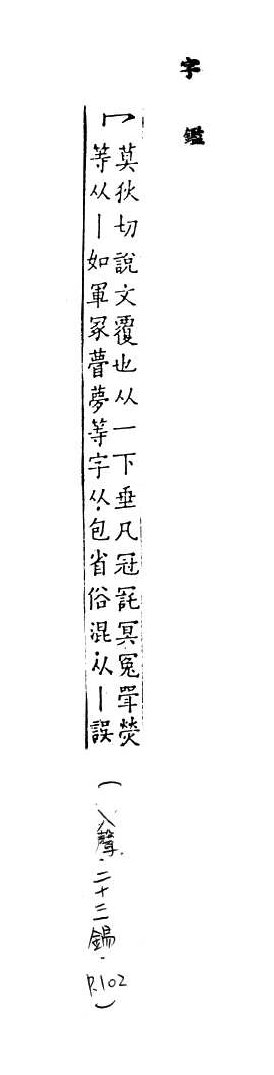 字鑑
冖
莫狄切說文覆也从一下垂凡冠㓃冥冤罕熒
等从丨如軍冢瞢夢等字从包省俗混从丨誤
(入聲．二十三錫．P.102)